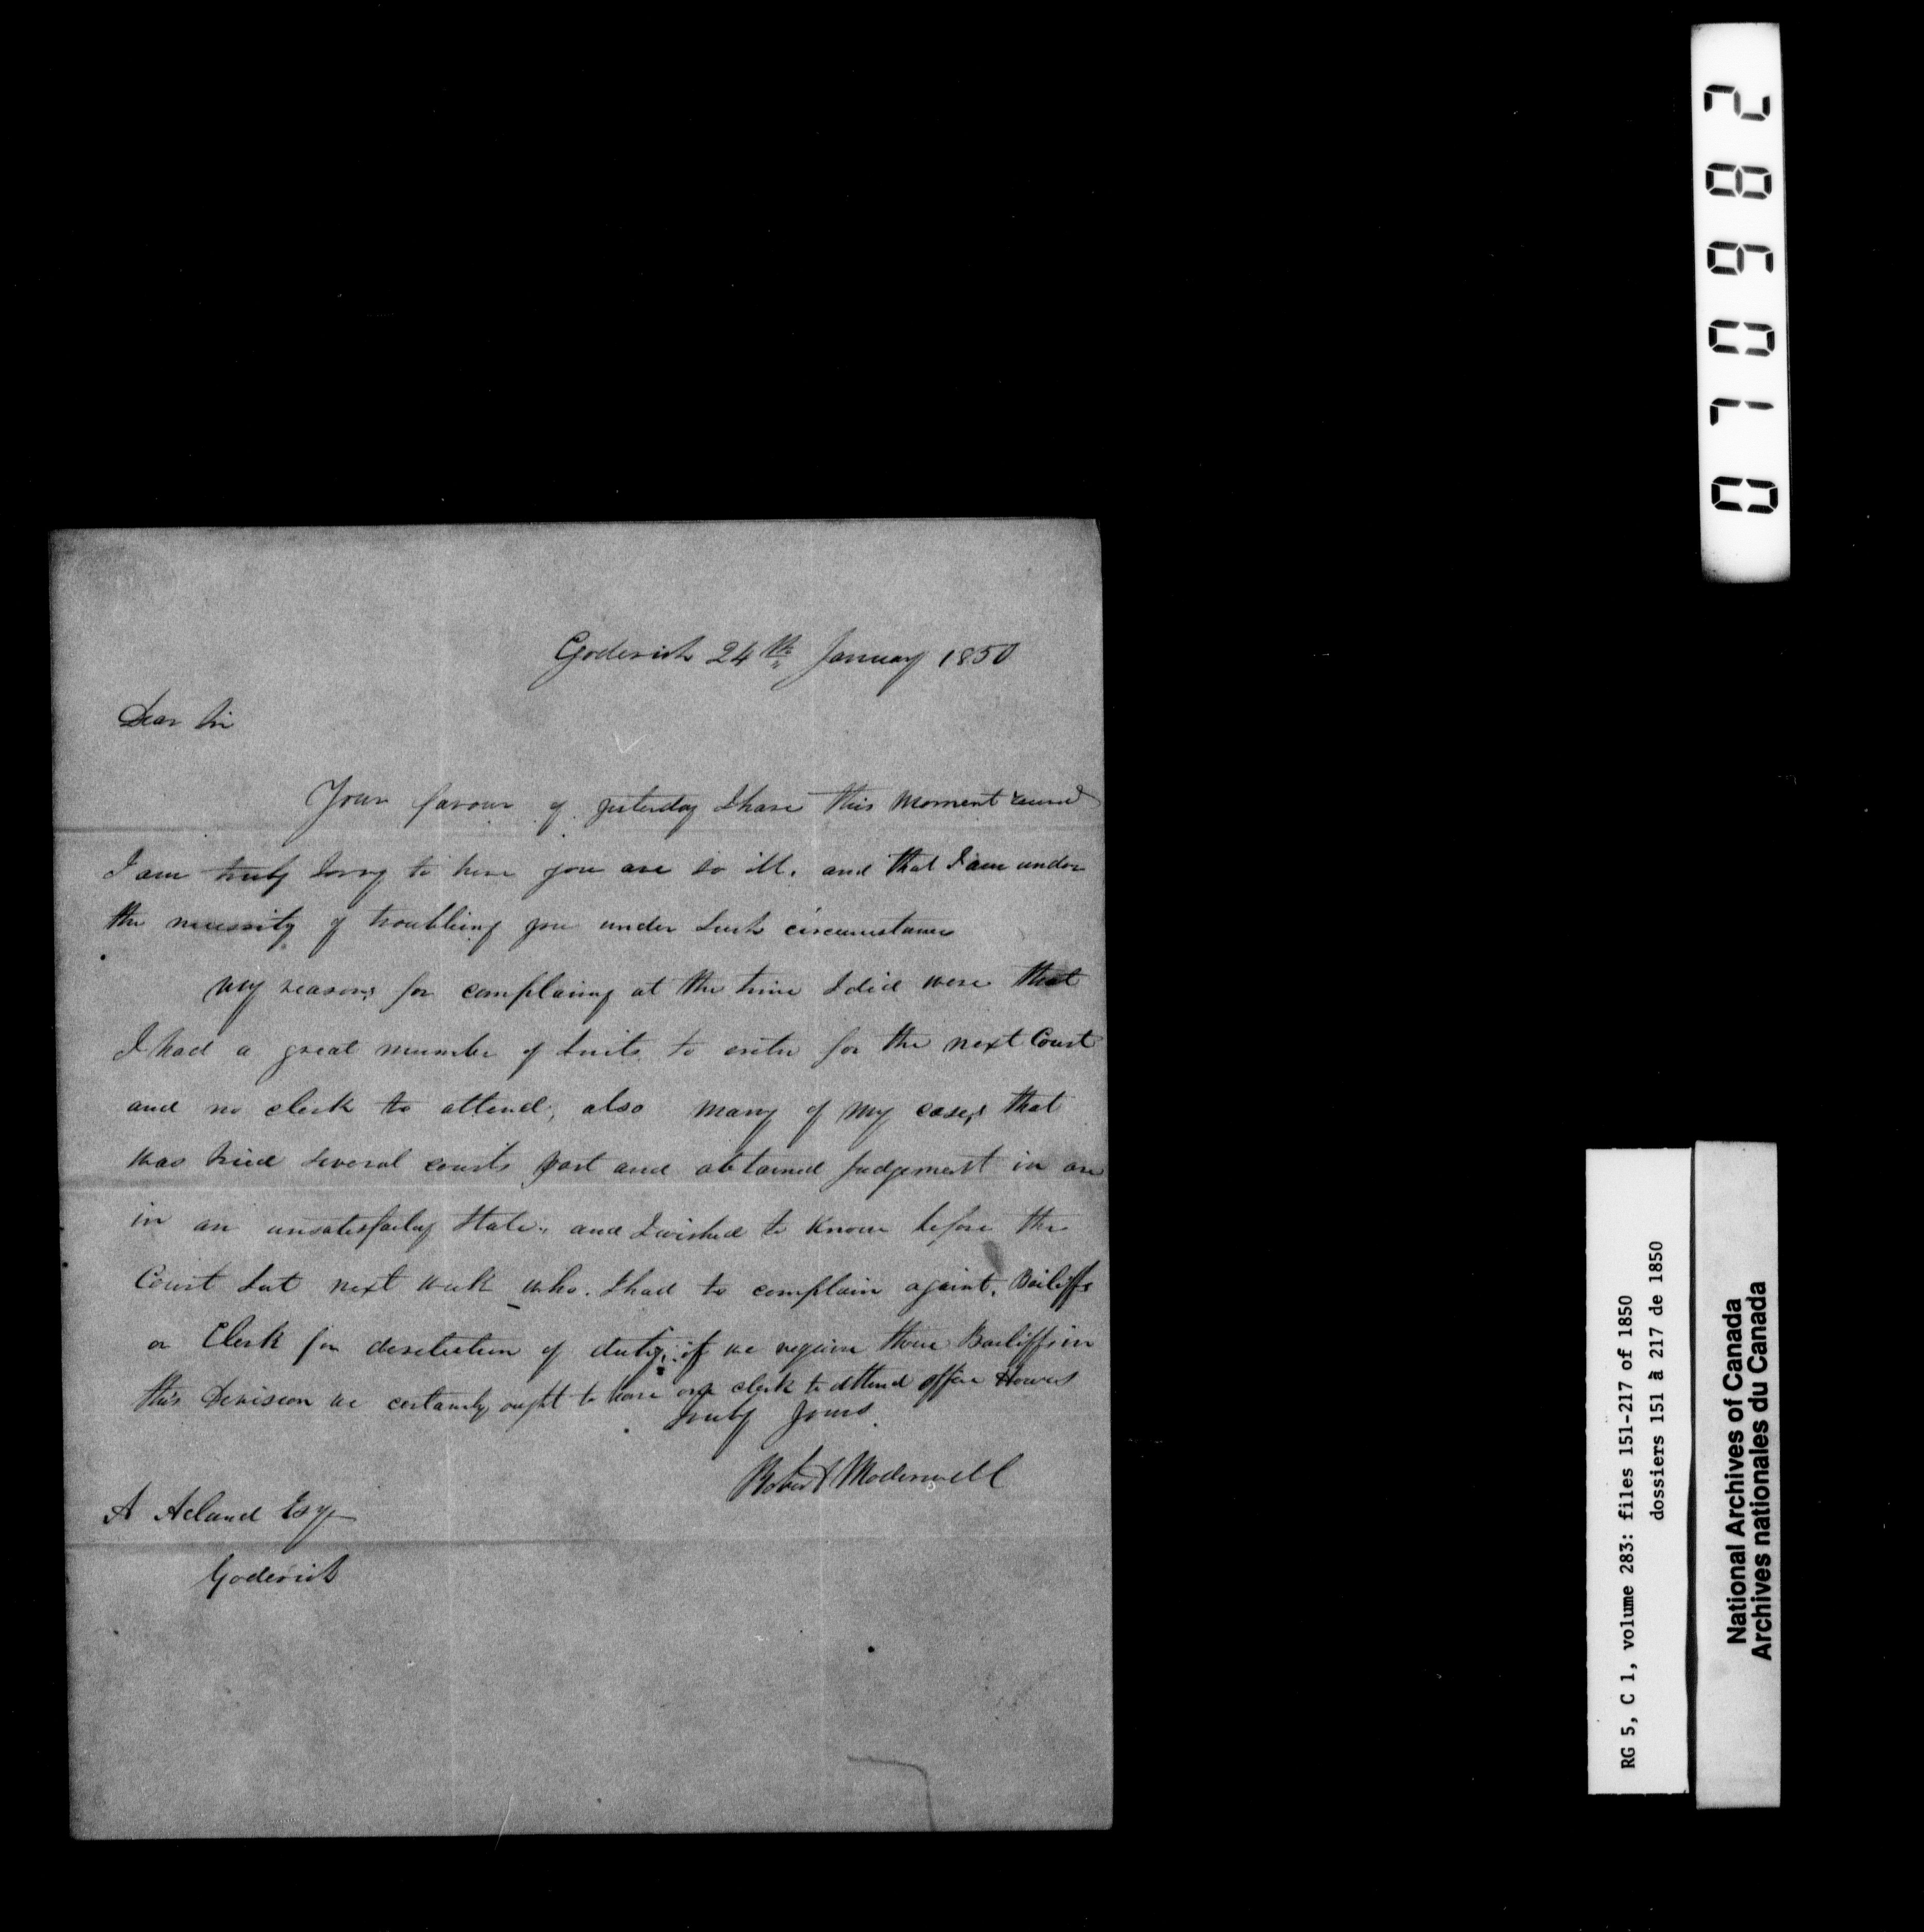 Goderich 24th January 1850
Dear Sir
Your favour of yesterday I have this moment recevd
I am truly sorry to here you are so ill. and that I am under
the necessity of troubling you under such circumstances
My reasons for complaing at the time I did were that
I had a great number of suits to enter for the next Court
and no clerk to attend, also many of my cases that
was tried several courts past and obtained judgement in are
in an unsatisfactory state, and I wished to know before the
Court sat next week who I had to complain against, Bailiffs
or Clerk for deseliction of duty; if we require three Bailiffs in
this Devision we certainly ought to have one clerk to attend office Howers
truly yours
Robert Moderwell
A Acland Esq
Goderich
070982
RG 5, C 1, volume 283: files 151-217 of 1850
dossiers 151 à 217 de 1850
National Archives of Canada
Archives nationales du Canada